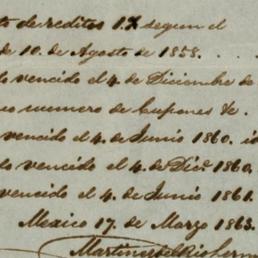 to de reditos 1.% segun el
de 10. de Agosto de 1858. . . .
lo vencido el 4. de Diciembre de
numero de Cupones &.
vencido el 4. de Junio 1860. i
lo vencido el 4. de Dicᵉ. 1860,
vencido el 4. de Junio 1861.
Mexico 17. de Marzo 1863.
Martinez del Rio herm